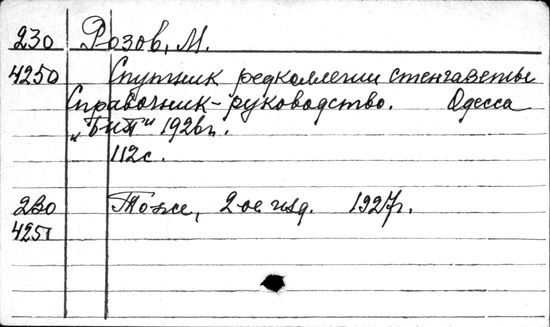 230 Розов, М.
4250 Спутник редколлегии стенгазеты
Справочник-руководство. Одесса
"БИТ" 1926г.
112с.
230 Тоже, 2-ое изд. 1927г.
4251